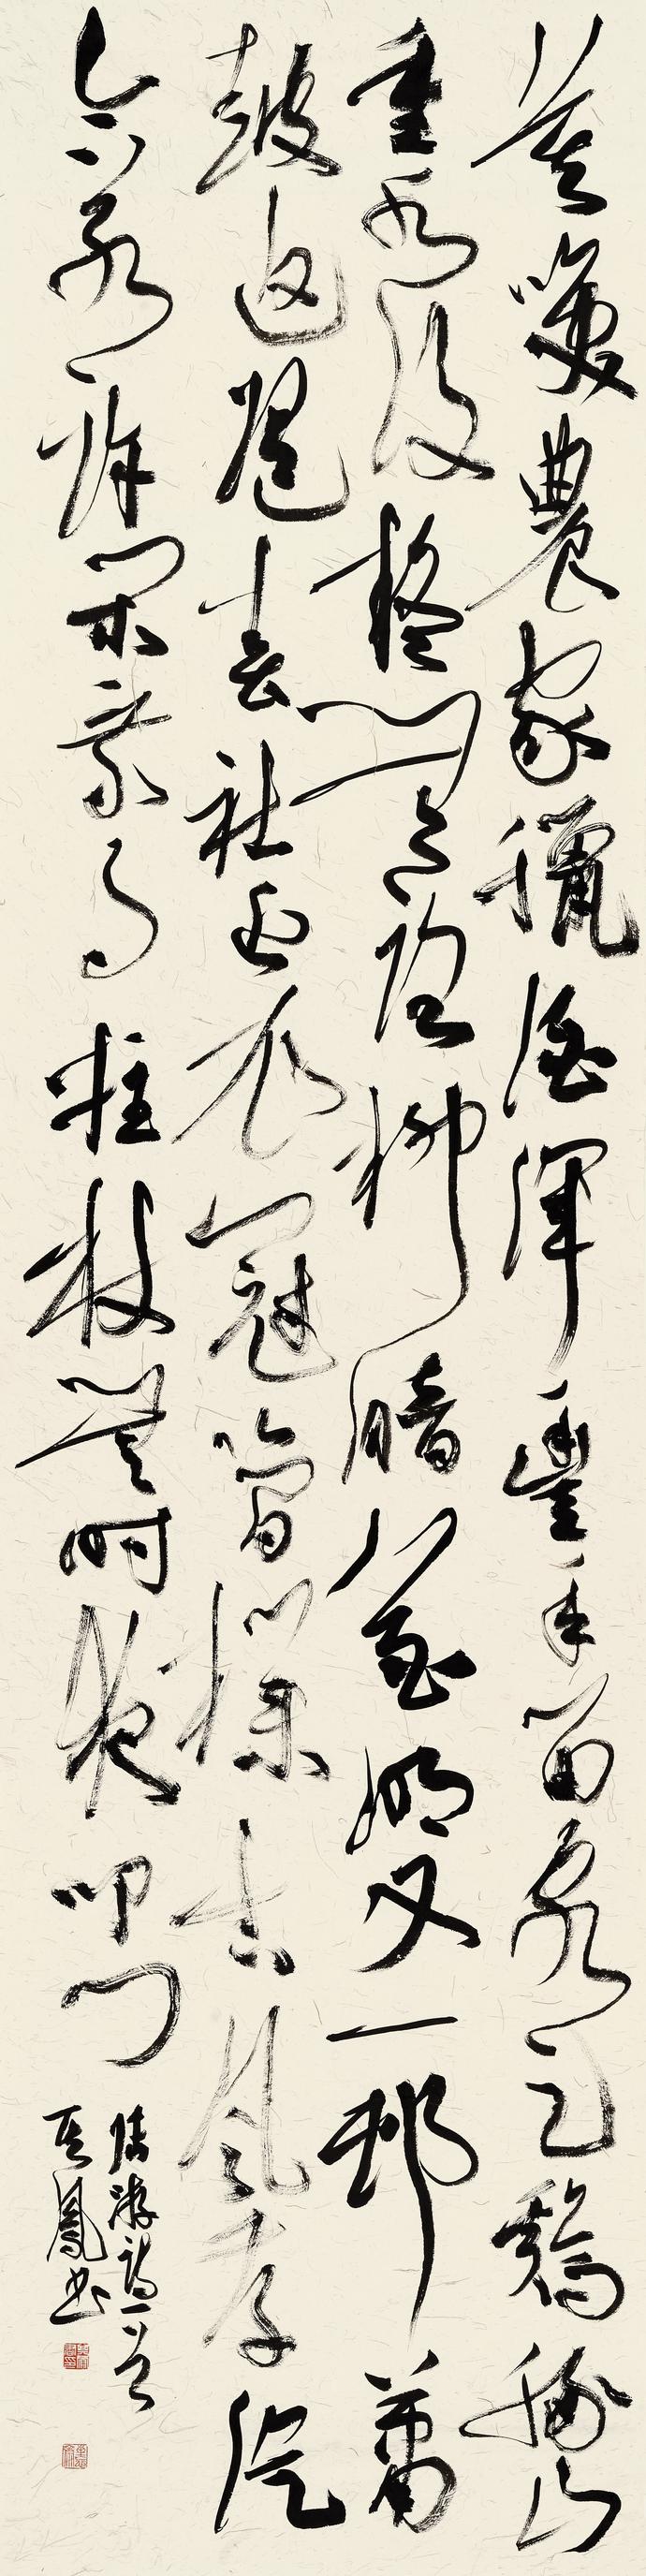 莫笑農家臘酒渾豐年留客足鷄豚山
重水複疑無路柳暗花明又一邨簫
鼓追隨春社近衣冠簡樸古風存從
今若許閑乘月拄杖無時夜叩門
陸游詩一首
鳳書